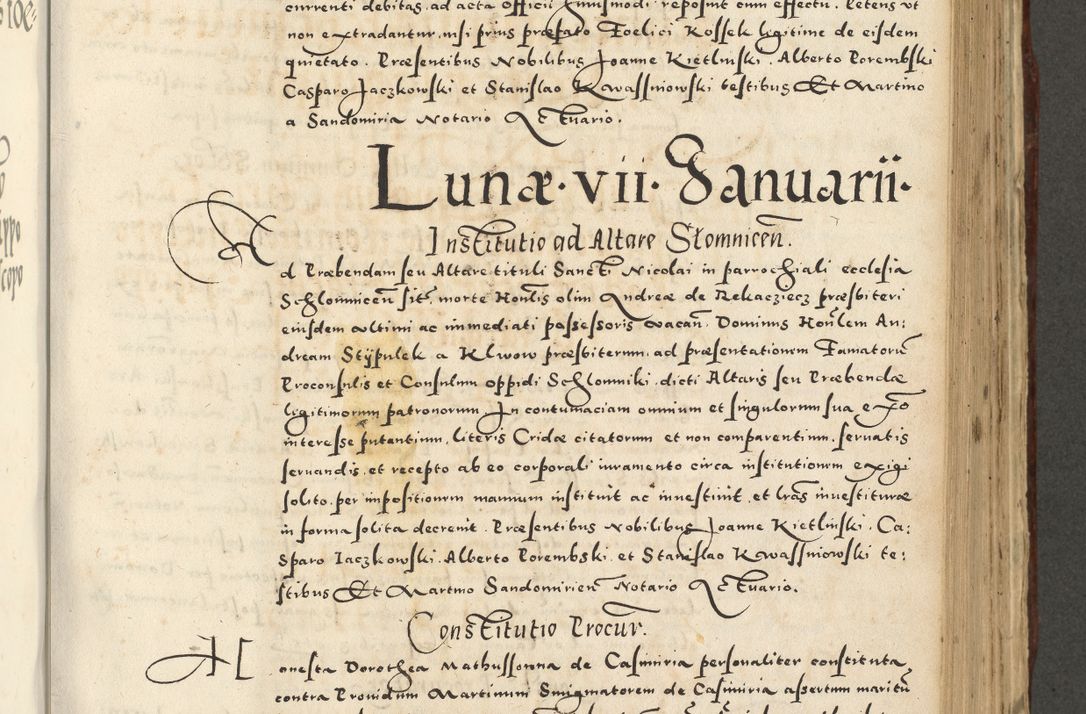 currenti debitas, ad acta officii huiusmodi reposuit cum effectu. Petens vt
non extradantur, nisi prius præfato Foelici Kossek legitime de eisdem
quietato. Præsentibus Nobilibus Joanne Kietlinski, Alberto Porembski
Casparo Jaczkowski et Stanislao Kwassniowski testibus Et Martino
a Sandomiria Notario Actuario.
Lunæ. vii. Januarii.
Institutio ad Altare Słomnicen̄.
Ad Præbendam seu Altare tituli Sancti Nicolai in parrochiali ecclesia
Schlomnicen̄ sit, morte Hon̄lis olim Andreæ de Rekacziecz præsbiteri
eiusdem vltimi ac immediati possessoris vacan̄. Dominus Hon̄lem An:
dream Stÿpulek a Klwow præsbiterum, ad præsentationem Famatorū
Proconsulis et Consulum oppidi Schlomniki, dicti Altaris seu Præbendæ
legitimorum patronorum In contumaciam omnium et singulorum sua ex̄o
interesse putantium, literis Cridæ citatorum et non comparentium, seruatis
seruandis, et recepto ab eo corporali iuramento circa institutionem exigi
solito, per impositionem manuum instituit ac inuestiuit, et lr̄as inuestituræ
in forma solita decreuit. Præsentibus Nobilibus Joanne Kietlinski, Ca:
sparo Jaczkowski, Alberto Porembski, et Stanislao Kwassniowski te:
stibus Et Martino Sandomirien̄ Notario Actuario.
Constitutio Procur.
Honesta Dorothea Mathussowna de Casimiria personaliter constituta,
contra Prouidum Martinum Smigmatorem de Casimiria assertum maritū